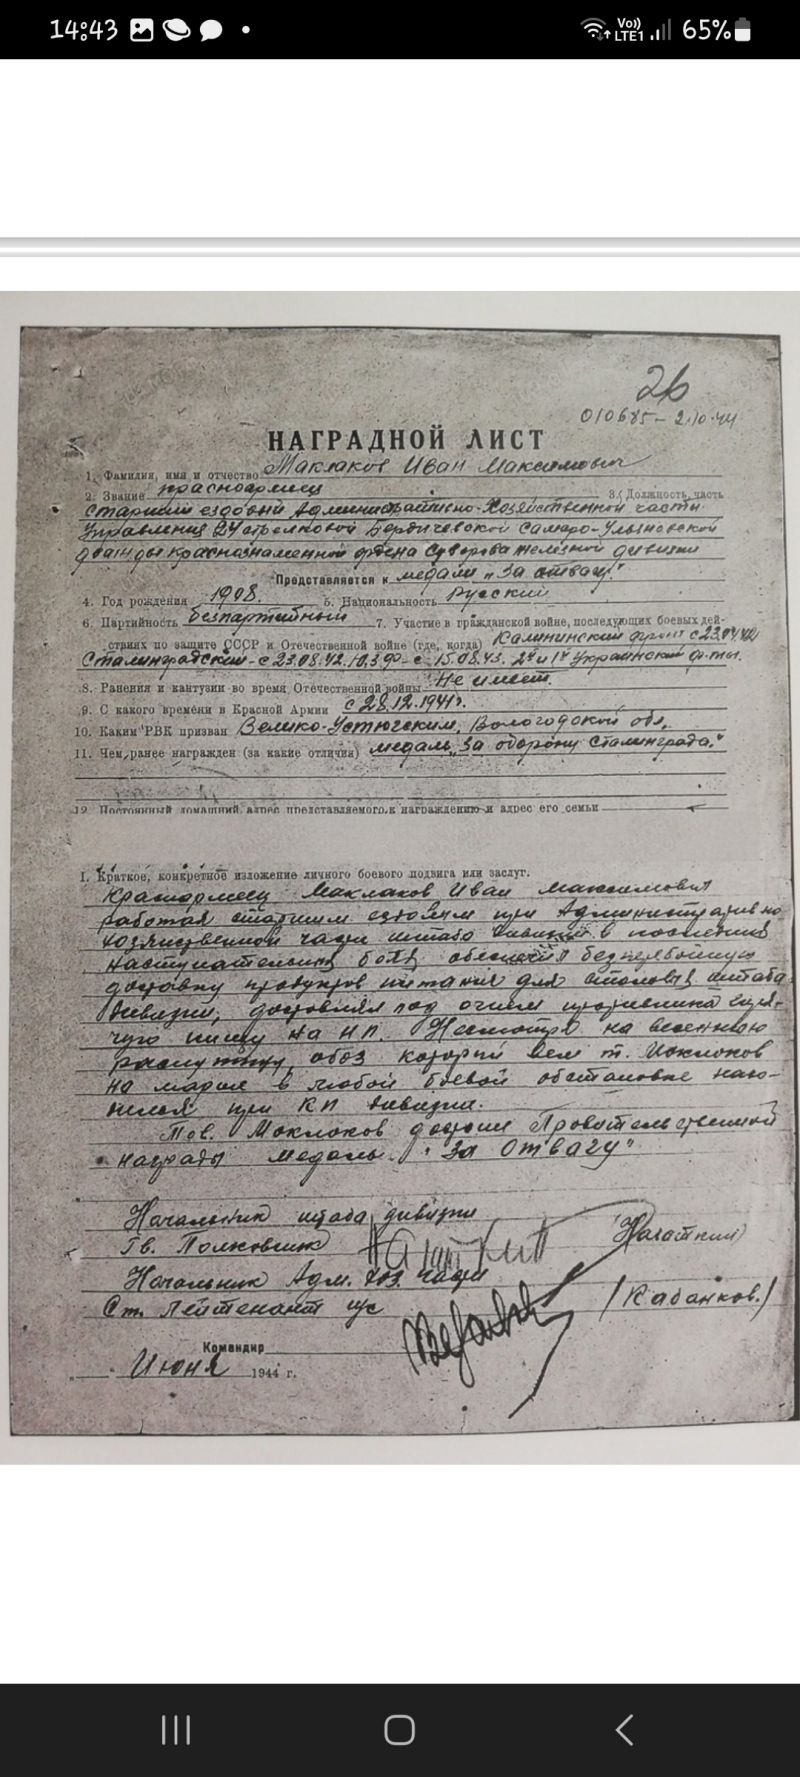 14:43
Vo)) LTE1 65%
26
010685 - 2.10.44
НАГРАДНОЙ ЛИСТ
1. Фамилия, имя и отчество Маклаков Иван Максимович
2. Звание красноармеец 3. Должность, часть
старший ездовой Административно-Хозяйственной части
Управления 24 стрелковой Бердичевской Самаро-Ульяновской
дважды краснознаменной ордена Суворова железной дивизии
Представляется к медали „За отвагу."
4. Год рождения 1908. 5. Национальность Русский
6. Партийность беспартийный 7. Участие в гражданской войне, последующих боевых дей-
ствиях по защите СССР и Отечественной войне (где, когда) Калининский фронт с 23.04.42
Сталинградский - с 23.08.42. 10.3 с 15.08.43. 2й и 1й Украинский ф-ты.
8. Ранения и кантузии во время Отечественной войны Не имеет.
9. С какого времени в Красной Армии с 28.12.1941г.
10. Каким РВК призван Велико-Устюгским, Вологодской обл.
11. Чем ранее награжден (за какие отличия) медаль „За оборону Сталинграда."
12. Постоянный домашний адрес представляемого к награждению и адрес его семьи
I. Краткое, конкретное изложение личного боевого подвига или заслуг.
Красноармеец Маклаков Иван Максимович
работая старшим ездовым при Административно
хозяйственной части штаба дивизии в последних
наступательных боях обеспечил бесперебойную
доставку продуктов питания для столовых штаба
дивизии, доставлял под огнем противника горя-
чую пищу на НП. Несмотря на весеннюю
распутицу, обоз который вел т. Маклаков
на марше в любой боевой обстановке нахо-
дился при КП дивизии.
Тов. Маклаков достоин Правительственной
награды медаль "За Отвагу"
Начальник штаба дивизии
Гв. Полковник
Начальник Адм. хоз. части
Ст. Лейтенант и/с (Кабанков.)
Командир
„ " Июня 1944 г.